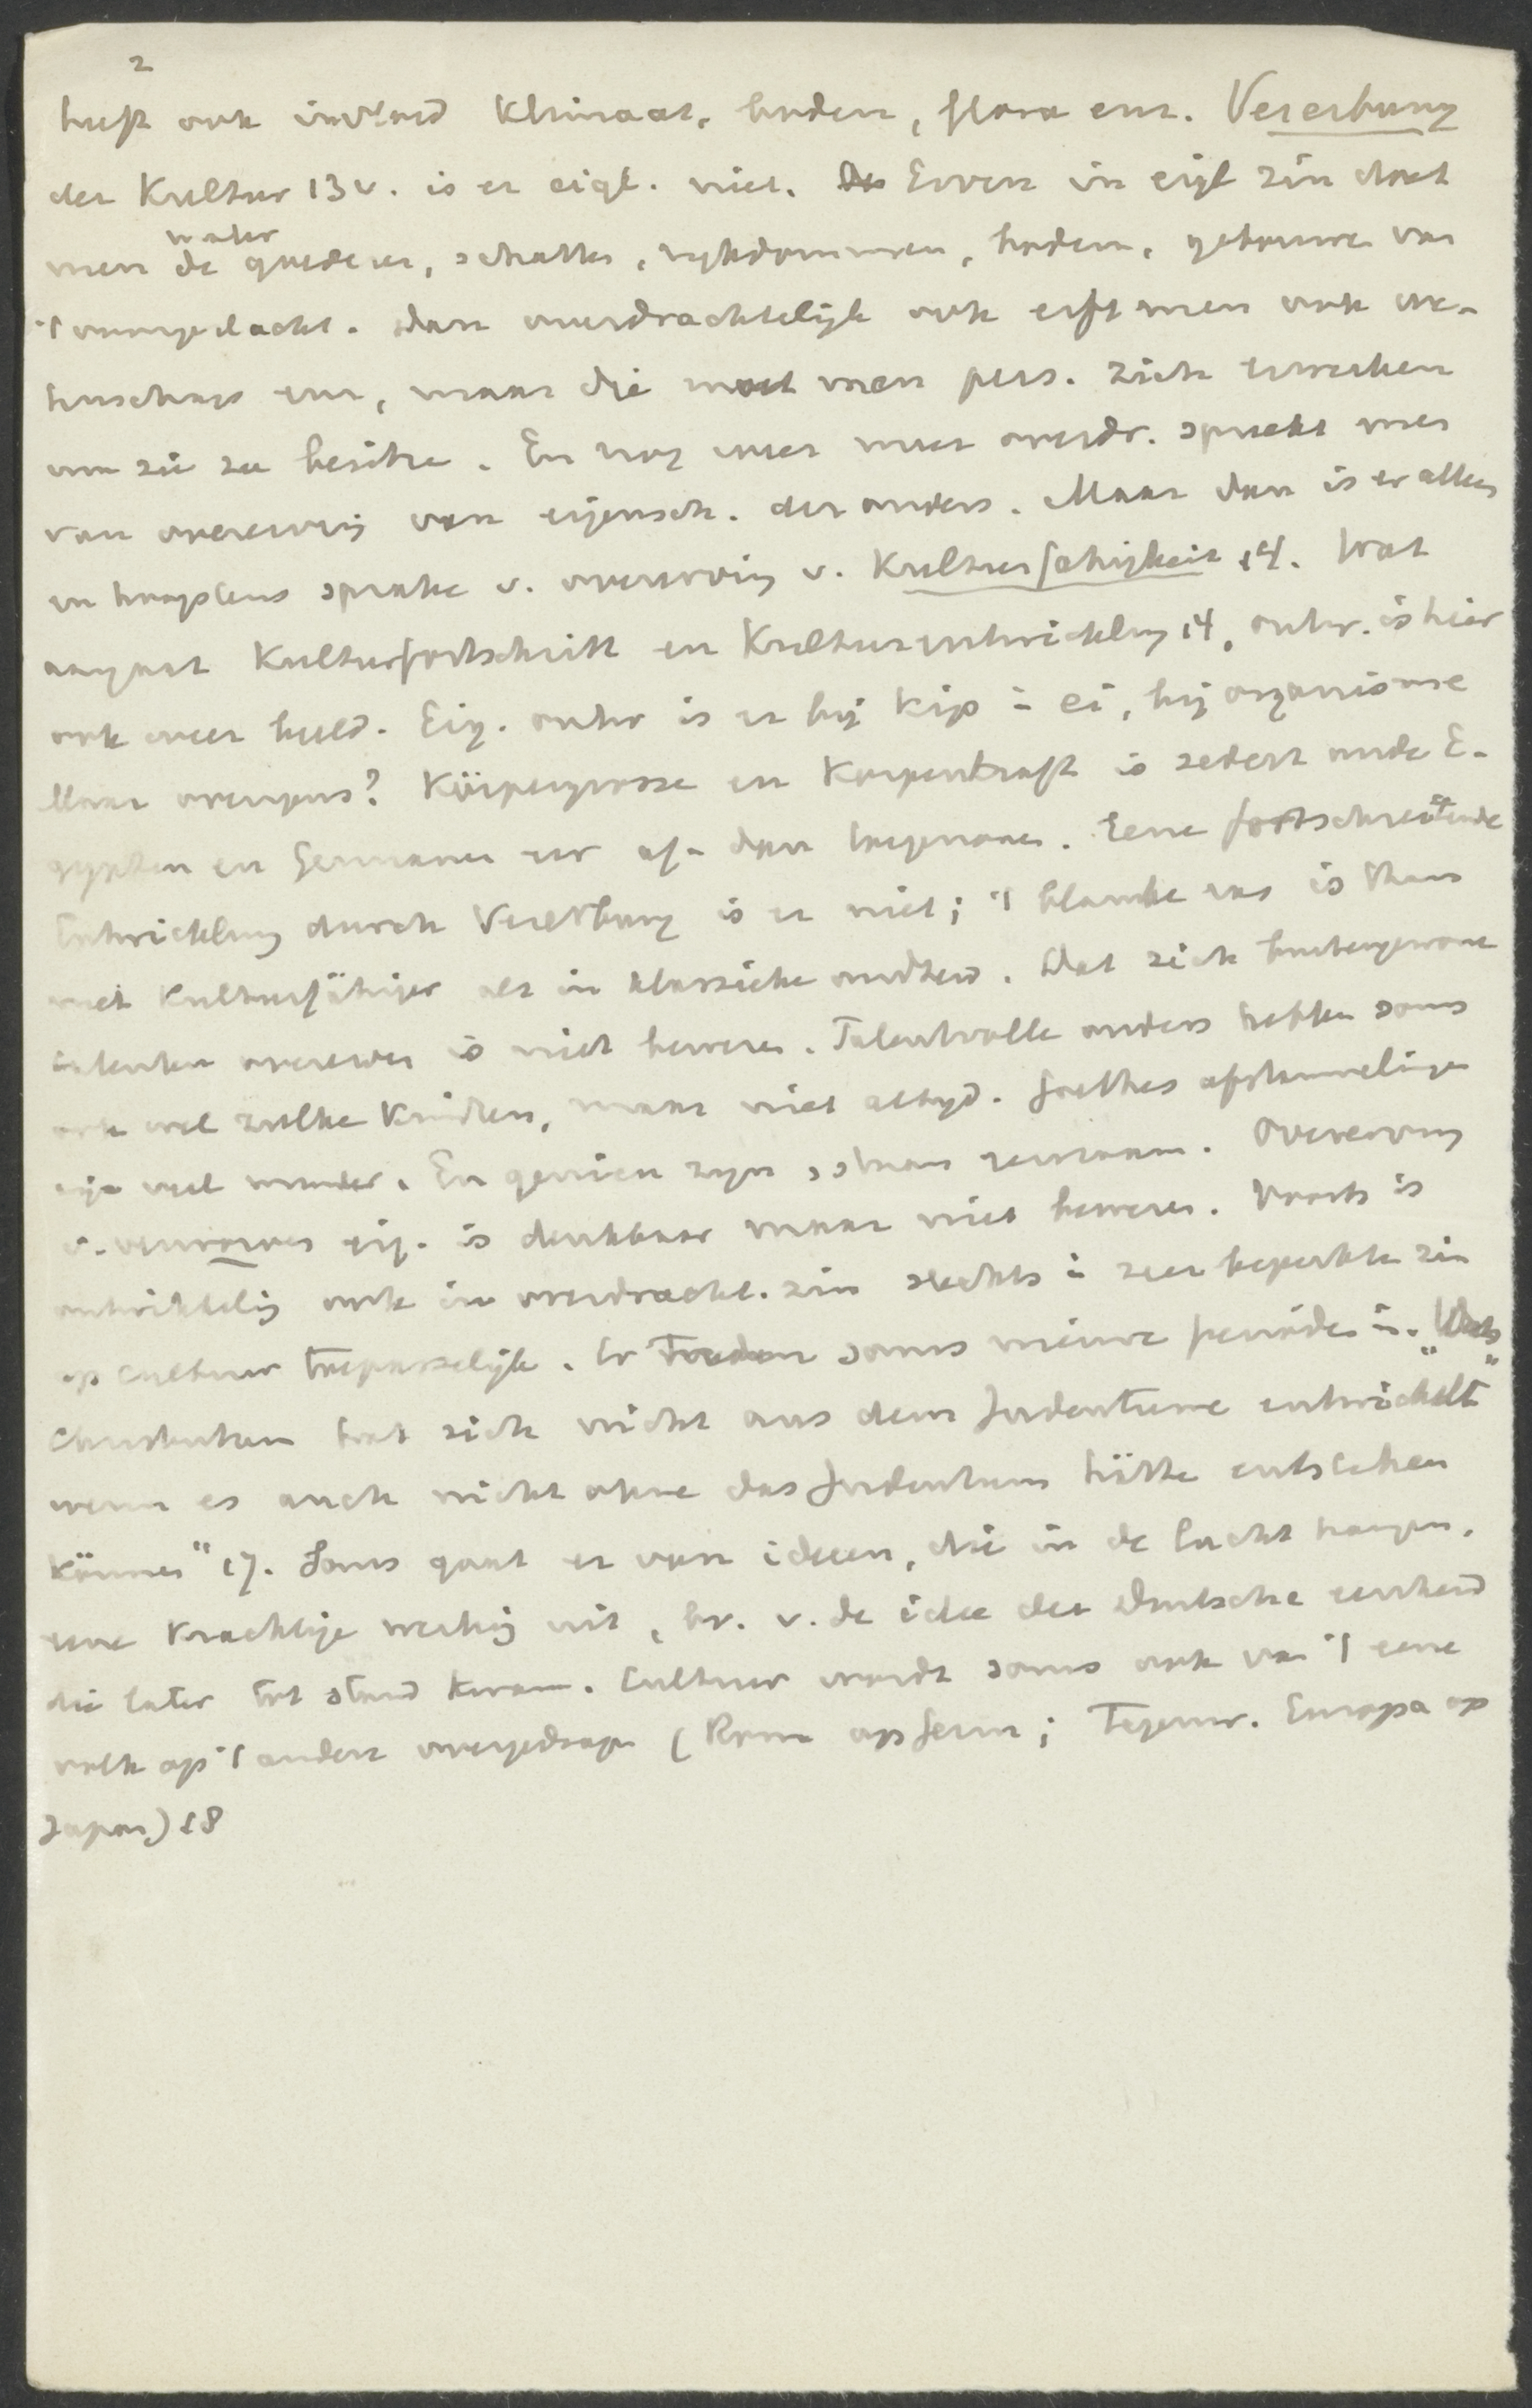 2
heeft ook invloed Klimaat, bodem, flora enz. Vererbung
der Kultur 13v. is er eigl. niet. Erven in eigl zin doet
mater
men de goederen, schatten, rykdommen, bodem, gebouwen van
't voorgeslacht. Dan overdrachtelijk ook erft men ook we-
tenschap enz, maar die moet men pers. zich verwerken
om zie ze besitze. En nog meer overdr. spreekt men
van overerving van eigensch. der ouders. Maar dan is er alleen
en hoogstens sprake v. overerving v. Kulturfähigkeit 14. Wat
aangaat Kulturfortschritt en Kulturentwicklung 14, ontw. is hier
ook weer beeld. Eig. ontw is er bij Kip in ei, bij organisme
Maar overigens? Körpergrosse en Körperkraft is sedert oude E-
gypten en Germanen eer af- dan toegenomen. Eene fortschreitende
Entwicklung durch Vererbung is er niet; 't blanke ras is thans
niet Kulturfähiger als in klassieke oudheid. Dat zich buitengewone
talenten overerven is niet bewezen. Talentvolle ouders hebben soms
ook wel zulke Kinderen, maar niet altyd. Goethes afstammelingen
zijn veel minder. En genieën zyn schaars. Overerving
v. verworven eig. is denkbaar maar niet bewezen. Voorts is
ontwikkeling ook in overdracht. zin slechts in zeer beperkte zin
op cultuur toepasselyk. Er treden soms nieuwe perioden in. "Das
Christentum hat sich nicht aus dem Judentume entwickelt"
wenn es auch nicht ohne das Judentum hätte entstehen
können" 17. Soms gaat er van ideeen, die in de lucht hangen,
eene Krachtige werking uit, bv. v. de idee der Duitsche eenheid
die later tot stand kwam. Cultuur wordt soms ook van 't eene
volk op 't andere overgedragen (Rome op Germ; Tegenw. Europa op
Japan) 18